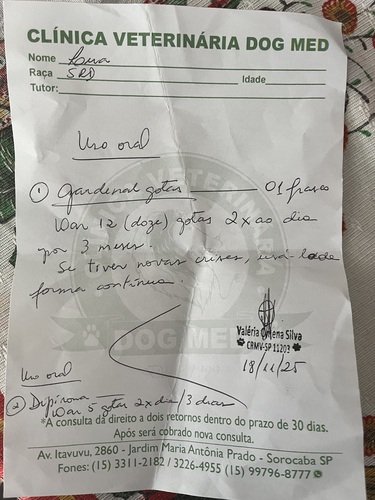 CLÍNICA VETERINÁRIA DOG MED
Nome
Raça SRD Idade
Tutor:
Uso oral
① Gardenal gotas 01 frasco
Dar 12 (doze) gotas 2x ao dia
por 3 meses.
Se tiver novas crises, usá-lo de
forma contínua.
VETERINÁRIA
DOG MED
Valéria Silva
CRMV-SP 11203
18/11/25
Uso oral
② Dipirona
Dar 5 gotas 2x dia/3 dias
*A consulta da direito a dois retornos dentro do prazo de 30 dias.
Após será cobrado nova consulta.
Av. Itavuvu, 2860 - Jardim Maria Antônia Prado - Sorocaba SP
Fones: (15) 3311-2182 / 3226-4955 (15) 99796-8777